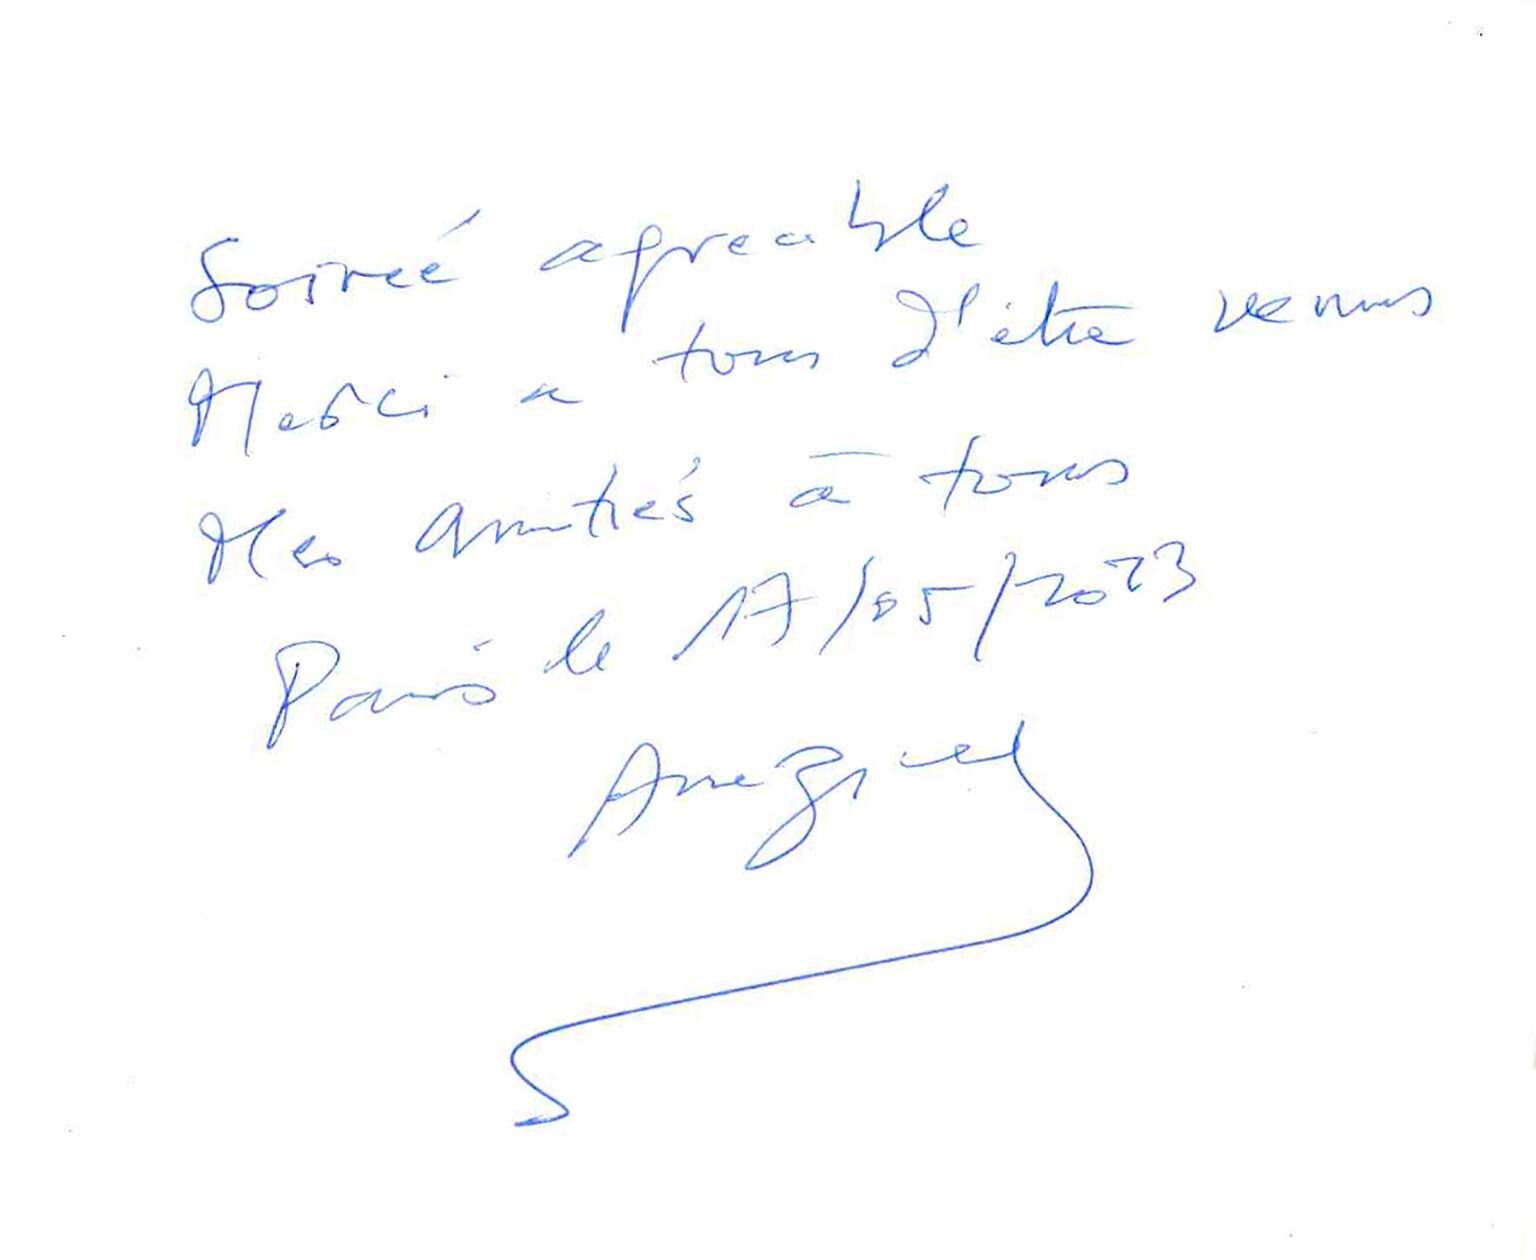 Soireé agreable
Merci a tous d'être venus
Mes amitiés à tous
Paris le 17/05/2023